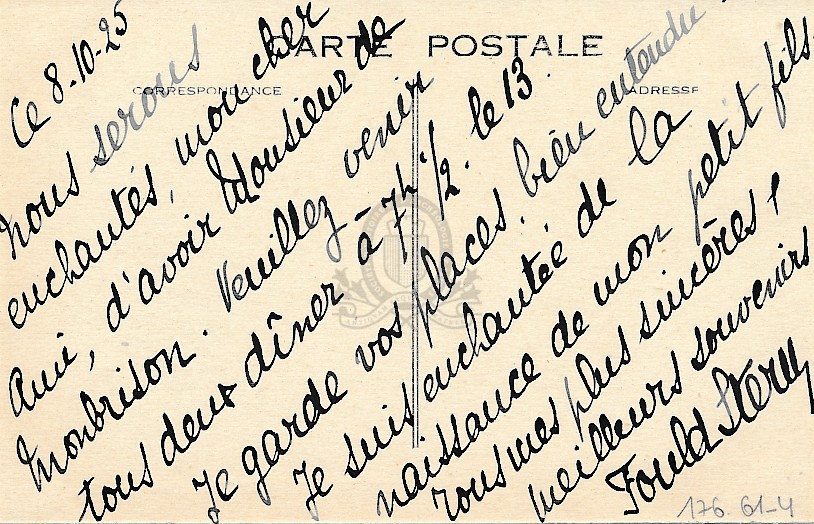 CARTE POSTALE
CORRESPONDANCE
ADRESSE
Ce 8-10-25
Nous serons
enchantés, mon cher
Ami, d'avoir Monsieur de
Monbrison. Veuillez venir
tous deux dîner à 7h 1/2. le 13.
Je garde vos places, bien entendu.
Je suis enchantée de la
naissance de mon petit fils.
tous mes plus sincères,
meilleurs souvenirs
Fould Stern
176.61-4